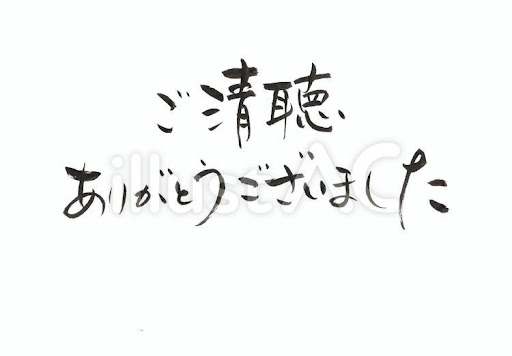 ご清聴、
ありがとうございました
illustAC